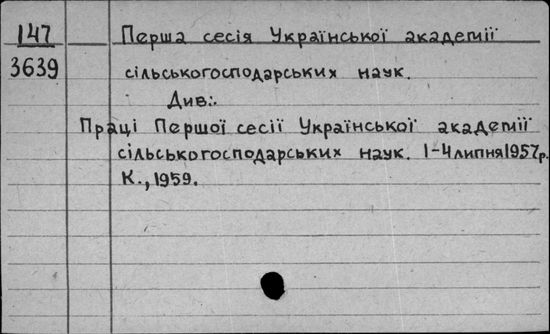 147
3639
Перша сесія Української академії
сільськогосподарських наук.
Див:.
Праці Першої сесії Української академії
сільськогосподарських наук. 1-4 липня 1957р.
К., 1959.